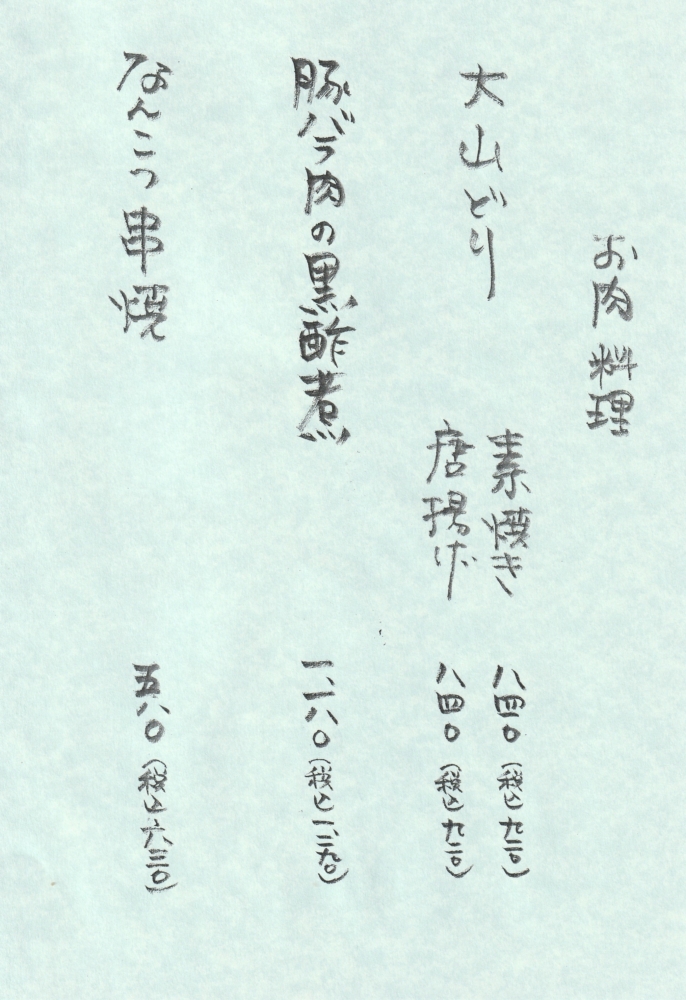 お肉料理
大山どり
素焼き 八四〇(税込九二〇)
唐揚げ 八四〇(税込九二〇)
豚バラ肉の黒酢煮 一、一八〇(税込一、二九〇)
なんこつ串焼 五八〇(税込六三〇)